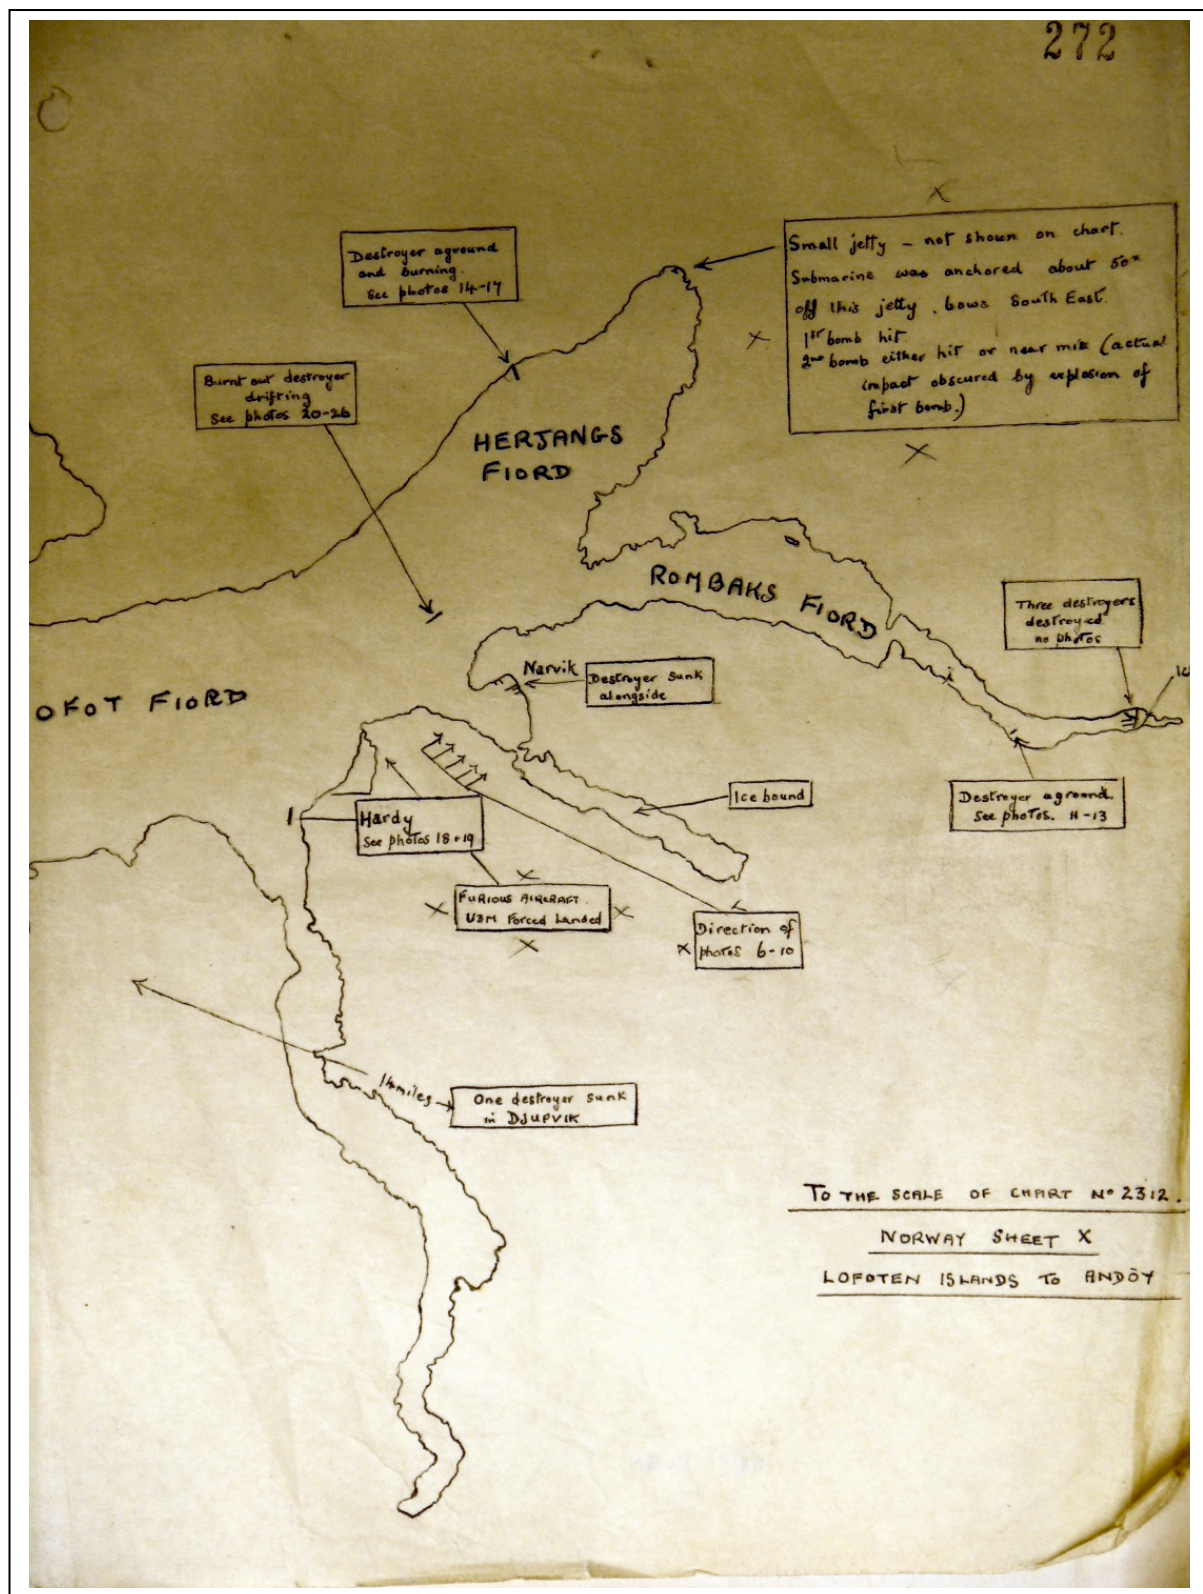 272
Destroyer aground
and burning.
See photos 14-17
Small jetty - not shown on chart.
Submarine was anchored about 50x
off this jetty, bows South East.
1st bomb hit.
2nd bomb either hit or near miss (actual
impact obscured by explosion of
first bomb.)
Burnt out destroyer
drifting
See photos 20-26
HERJANGS
FIORD
ROMBAKS FIORD
Three destroyers
destroyed
no photos
Narvik
Destroyer sunk
alongside
OFOT FIORD
Ice bound
Destroyer aground.
See photos. 11-13
Hardy
See photos 18+19
FURIOUS AIRCRAFT.
U3M Forced Landed
Direction of
photos 6-10
14 miles
One destroyer sunk
in DJUPVIK
TO THE SCALE OF CHART No 2312.
NORWAY SHEET X
LOFOTEN ISLANDS TO ANDÖY